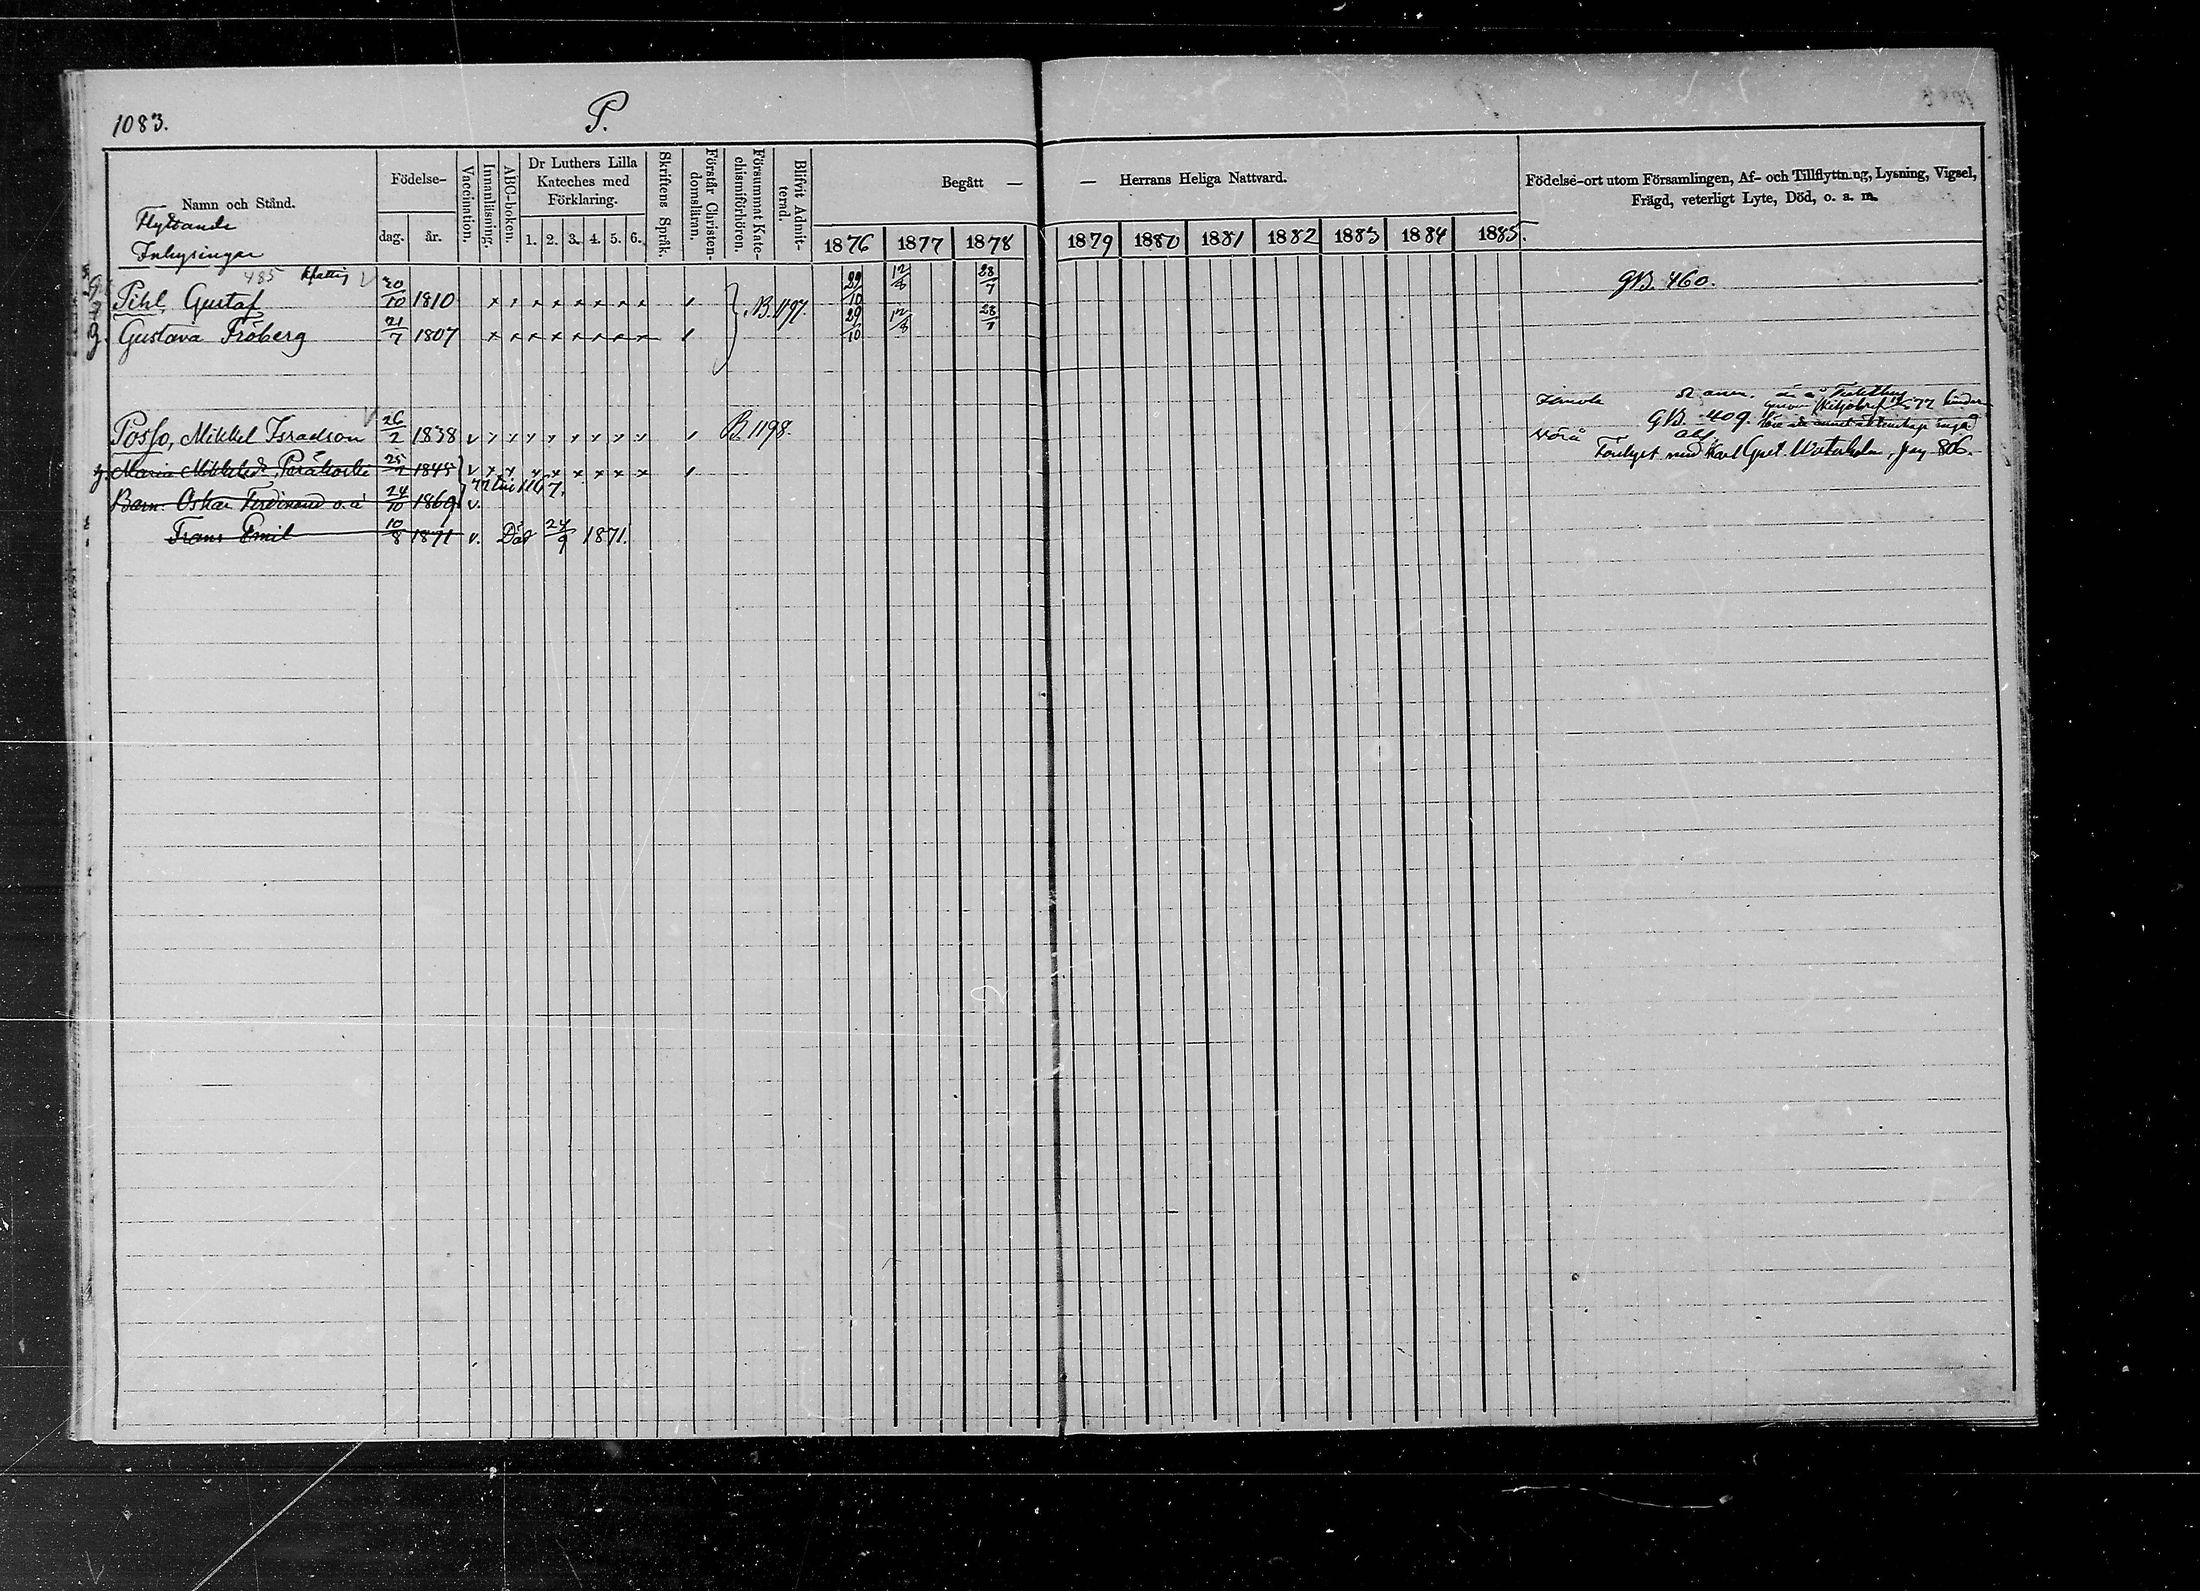 1083.
P.
Namn och Stånd.
Flyttande
Inhysingar
Födelse-
dag.
år.
Vaccination.
Innanläsning.
ABC-boken.
Dr Luthers Lilla
Kateches med
Förklaring.
1. 2. 3. 4. 5. 6.
Skriftens Språk.
Förstår Christen-
domsläran.
Försummat Kate-
chismiförhören.
Blifvit Admit-
terad.
Begått —
— Herrans Heliga Nattvard.
1876 1877 1878 1879 1880 1881 1882 1883 1884 1885.
Födelse-ort utom Församlingen, Af- och Tillflyttning, Lysning, Vigsel,
Frägd, veterligt Lyte, Död, o. a. m.
485
Pihl, Gustaf 20/10 1810 x x x x x x x x B. 1197. 29/10 12/8 28/7 GB. 460.
Gustava Fröberg 21/7 1807 x x x x x x x x 29/10 12/8 28/7
Posso, Mikkel Israelson 26/2 1838 v B. 1198. GB. 409.
Maria Mikkelsdr 1845 v x x x x x x x x Förlyst med Karl Gust. , pag 806.
Barn: Oskar Ferdinand o.ä 24/10 1869 v.
Frans Emil 10/8 1871 v. Död 24/9 1871.